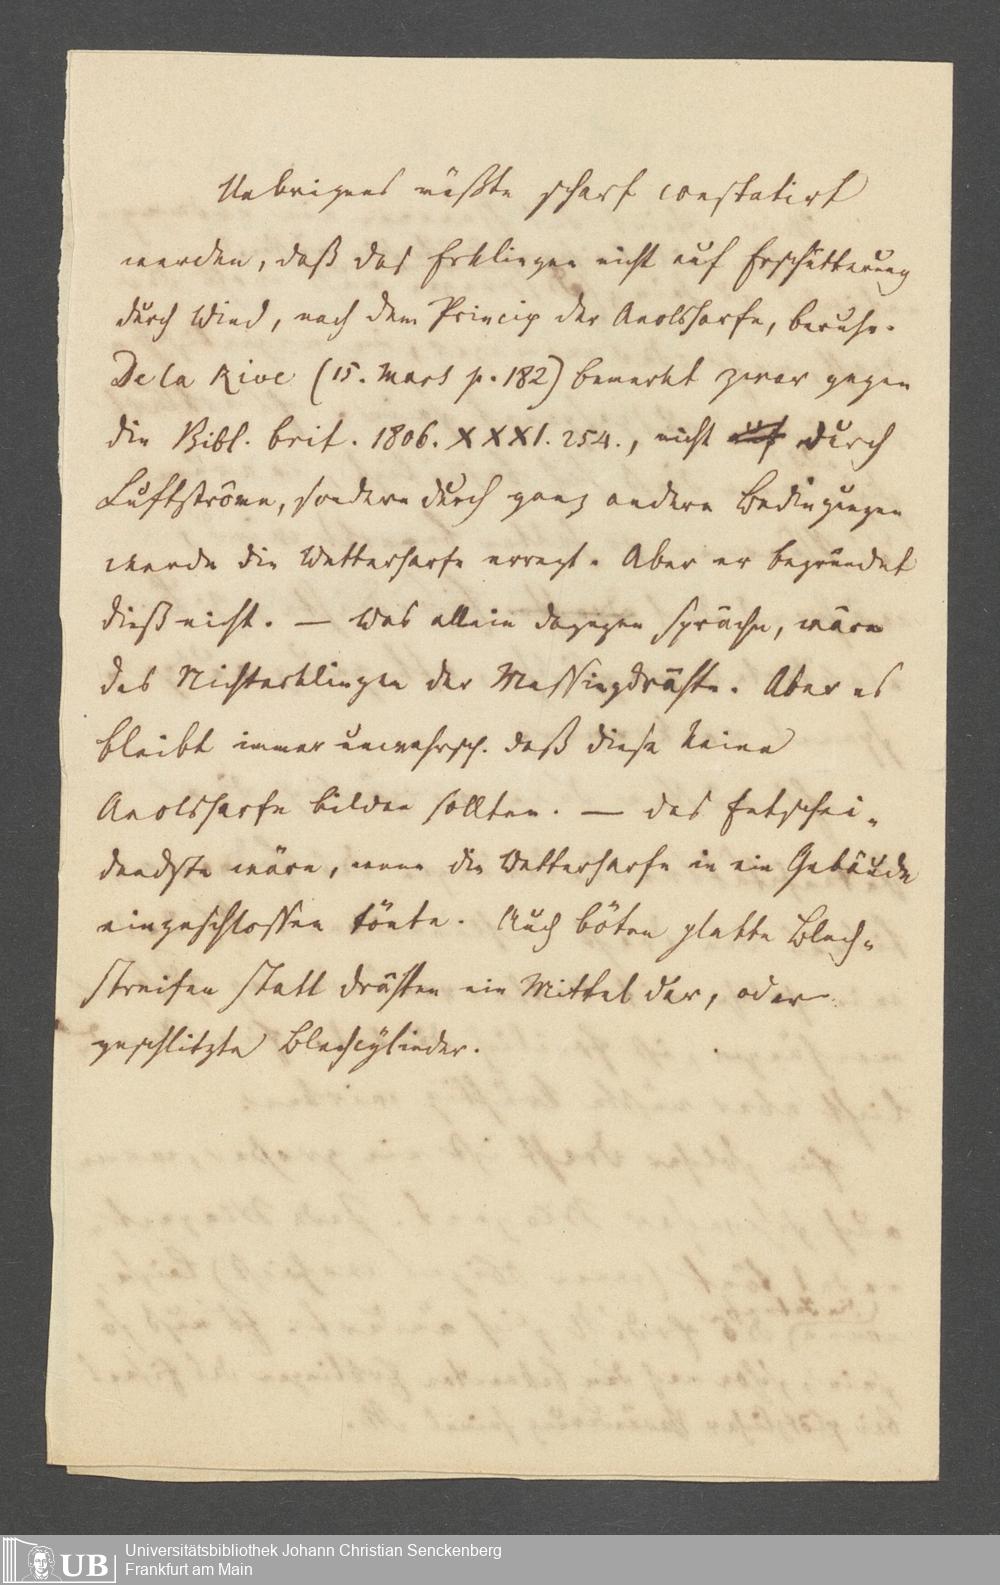 Uebrigens müßte scharf constatirt
werden, daß das Erklingen nicht auf Erschütterung
durch Wind, nach dem Princip der Aeolsharfe, beruhe.
De la Rive (15. Mars p. 182) bemerkt zwar gegen
die Bibl. brit. 1806. XXXI. 254., nicht auf durch
Luftströme, sondern durch ganz andere Bedingungen
werde die Wetterharfe erregt. Aber er begründet
dieß nicht. — Was allein dagegen spräche, wäre
das Nichterklingen der Messingdrähte. Aber es
bleibt immer unwahrsch. daß diese keine
Aeolsharfe bilden sollten. — Das Entschei-
dendste wäre, wenn die Wetterharfe in ein Gebäude
eingeschlossen tönte. Auch böten platte Blech-
streifen statt Drähten ein Mittel dar, oder
geschlitzte Blechcylinder.
UB
Universitätsbibliothek Johann Christian Senckenberg
Frankfurt am Main